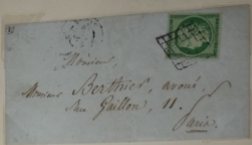 Monsieur,
Monsieur Berthier, avoué,
Rue Gaillon, 11.
Paris